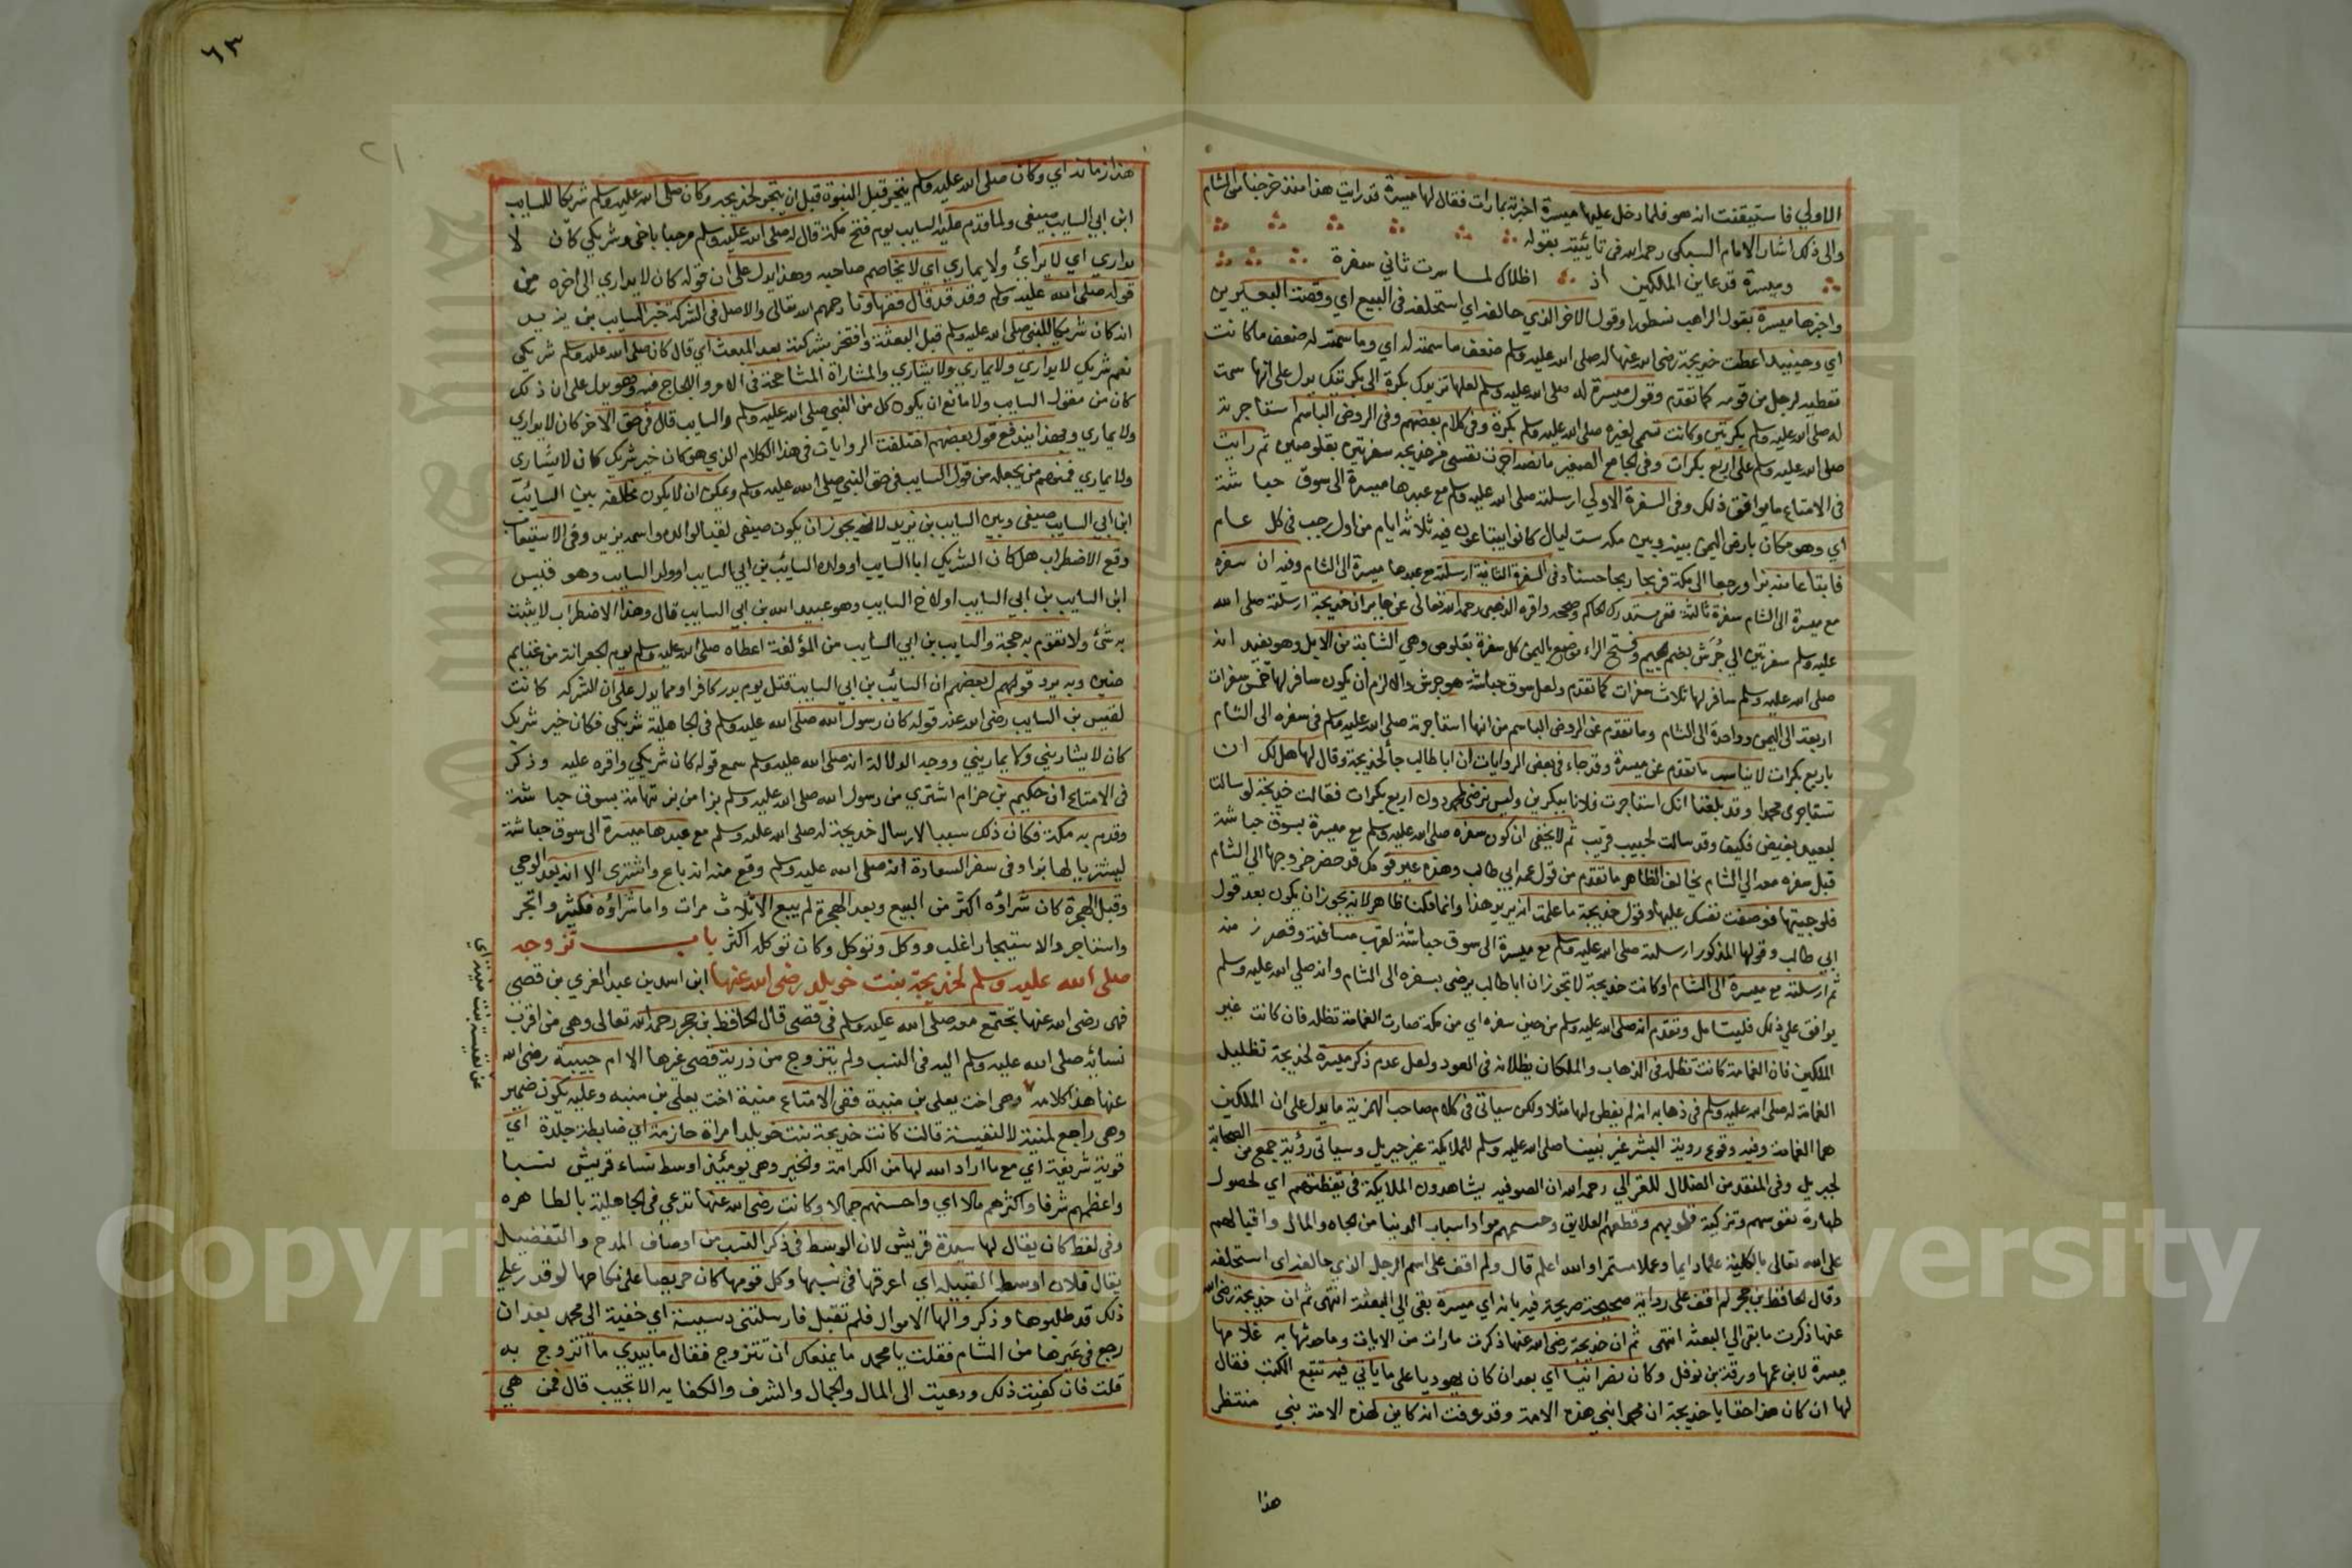 الاولي فاستيقنت انه هو فلما دخل عليها ميسرة اخبرته بما رات فقال لها ميسرة قد رايت هذا منذ خرجنا من الشام
والى ذلك اشار الامام السبكى رحمه الله فى تائيته بقوله
وميسرة قد عاين الملكين اذ اظلاك لما سرت ثاني سفرة
واخبرها ميسرة بقول الراهب نسطورا وقول الاخر الذي حالفه اي استحلفه فى البيع اي وقصة البعيرين
اي وحينيذ اعطت خديجة رضى الله عنها له صلى الله عليه وسلم ضعف ما سمته له اي وما سمته له ضعف ما كانت
تعطيه لرجل من قومه كما تقدم وقول ميسرة له صلى الله عليه وسلم لعلها تزيدك بكرة الى بكرتيك يدل على انها سمت
له صلى الله عليه وسلم بكرتين وكانت تسمى لغيره صلى الله عليه وسلم بكرة وفى كلام بعضهم وفى الروض الباسم استاجرته
صلى الله عليه وسلم على اربع بكرات وفى الجامع الصغير ما نصه اجرت نفسى من خديجة سفرتين بقلوصين ثم رايت
فى الامتاع ما يوافق ذلك وفى السفرة الاولي ارسلته صلى الله عليه وسلم مع عبدها ميسرة الى سوق حباشة
اي وهو مكان بارض اليمن بينه وبين مكة ست ليال كانوا يبتاعون فيه ثلاثة ايام من اول رجب فى كل عام
فابتاعا منه بزا ورجعا الى مكة فربحا ربحا حسنا وفى السفرة الثانية ارسلته مع عبدها ميسرة الى الشام وفيه ان سفره
مع ميسرة الى الشام سفرة ثالثة ففى مستدرك الحاكم وصححه واقره الذهبى رحمه الله تعالى عن جابر ان خديجة ارسلته صلى الله
عليه وسلم سفرتين الي جُرَش بضم الجيم وفتح الراء موضع باليمن كل سفرة بقلوص وهي الشابة من الابل وهو يفيد انه
صلى الله عليه وسلم سافر لها ثلاث سفرات كما تقدم ولعل سوق حباشة هو جرش والا لزم ان يكون سافر لها خمس سفرات
اربعة الى اليمن وواحدة الى الشام وما تقدم عن الروض الباسم من انها استاجرته صلى الله عليه وسلم فى سفره الى الشام
باربع بكرات لا يناسب ما تقدم عن ميسرة وقد جاء فى بعض الروايات ان ابا طالب جأ لخديجة وقال لها هل لك ان
تستاجري محمدا وقد بلغنا انك استاجرت فلانا ببكرين وليس نرضى لمحمد دون اربع بكرات فقالت خديجة لو سالت
لبعيد بغيض فكيف وقد سالت لحبيب قريب ثم لا يخفى ان كون سفره صلى الله عليه وسلم مع ميسرة بسوق حباشة
قبل سفره معه الي الشام يخالف الظاهر ما تقدم من قول عمه ابي طالب وهذه عير قومك قد حضر خروجها الي الشام
فلو جيتها فوضعت نفسك عليها وقول خديجة ما علمت انه يريد هذا وانما قلنا ظاهر لانه يجوز ان يكون بعد قول
ابي طالب وقولها المذكور ارسلته صلى الله عليه وسلم مع ميسرة الى سوق حباشة لقرب مسافته وقصر زمنه
ثم ارسلته مع ميسرة الى الشام او كانت خديجة لا تجوز ان ابا طالب يرضى بسفره الى الشام وانه صلى الله عليه وسلم
يوافق علي ذلك فليتامل وتقدم انه صلى الله عليه وسلم من حين سفره اي من مكة صارت الغمامة تظله فان كانت غير
الملكين فان الغمامة كانت تظله فى الذهاب والملكان يظلانه فى العود ولعل عدم ذكر ميسرة لخديجة تظليل
الغمامة له صلى الله عليه وسلم فى ذهابه انه لم يفطن لها مثلا ولكن سياتى فى كلام صاحب الهمزية ما يدل على ان الملكين
هما الغمامة وفيه وقوع روية البشر غير نبينا صلى الله عليه وسلم للملايكة غير جبريل وسياتى رؤية جمع من الصحابة
لجبريل وفى المنقذ من الضلال للغزالي رحمه الله ان الصوفيه يشاهدون الملايكة فى يقظتهم اي لحصول
طهارة نفوسهم وتزكية قلوبهم وقطعهم العلايق وحسمهم مواد اسباب الدنيا من الجاه والمال واقبالهم
على الله تعالى بالكلية علما دايما وعملا مستمرا والله اعلم قال ولم اقف على اسم الرجل الذي حالفه اي استحلفه
وقال الحافظ بن حجر لم اقف على رواية صحيحة صريحة فيه بانه اي ميسرة بقى الي البعثة انتهى ثم ان خديجة رضى الله
عنها ذكرت ما بقى الي البعثه انتهى ثم ان خديجة رضى الله عنها ذكرت ما رات من الايات وما حدثها به غلامها
ميسرة لابن عمها ورقة بن نوفل وكان نصرانيا اي بعد ان كان يهوديا على ما ياتي فيه تتبع الكتب فقال
لها ان كان هذا حقا يا خديجة ان محمدا نبي هذه الامة وقد عرفت انه كاين لهذه الامة نبي منتظر
هذا
٦٣
هذا زمانه اي وكان صلى الله عليه وسلم يتجر قبل النبوة قبل ان يتجر لخديجة وكان صلى الله عليه وسلم شريكا للسايب
ابن ابي السايب صيفى ولما قدم عليه السايب يوم فتح مكة قال له صلى الله عليه وسلم مرحبا باخى وشريكي كان لا
يداري اي لا يرائ ولا يماري اي لا يخاصم صاحبه وهذا يدل على ان قوله كان لا يداري الى اخره من
قوله صلى الله عليه وسلم وقد قال فقهاونا رحمهم الله تعالى والاصل فى الشركة خبر السايب بن يزيد
انه كان شريكا للنبى صلى الله عليه وسلم قبل البعثة وافتخر بشركته بعد المبعث اي قال كان صلى الله عليه وسلم شريكي
نعم شريكي لا يداري ولا يماري ولا يشاري والمشاراة المشاححة فى الامر واللجاج فيه وهو يدل على ان ذلك
كان من مقول السايب ولا مانع ان يكون كل من النبي صلى الله عليه وسلم والسايب قال فى حق الاخر كان لا يداري
ولا يماري وبهذا يندفع قول بعضهم اختلفت الروايات فى هذا الكلام الذي هو كان خير شريك كان لا يشاري
ولا يماري فمنهم من يجعله من قول السايب فى حق النبي صلى الله عليه وسلم ويمكن ان لا يكون مخالفه بين السائب
ابن ابي السايب صيفى وبين السايب بن يزيد لانه يجوز ان يكون صيفى لقبا لوالده واسمه يزيد وفى الاستيعاب
وقع الاضطراب هل كان الشريك ابا السايب او ولده السائب بن ابي السايب او ولد السايب وهو قيس
ابن السايب بن ابي السايب او لاخ السايب وهو عبيد الله بن ابي السايب قال وهذا الاضطراب لا يثبت
به شئ ولا تقوم به حجة والسايب بن ابي السايب من المؤلفة اعطاه صلى الله عليه وسلم يوم الجعرانة من غنايم
حنين وبه يرد قول بعضهم ان السائب بن ابي السايب قتل يوم بدر كافرا ومما يدل على ان الشركه كانت
لقيس بن السايب رضى الله عنه قوله كان رسول الله صلى الله عليه وسلم فى الجاهلية شريكي فكان خير شريك
كان لا يشاريني ولا يماريني ووجه الدلالة انه صلى الله عليه وسلم سمع قوله كان شريكي واقره عليه وذكر
فى الامتاع ان حكيم بن حزام اشتري من رسول الله صلى الله عليه وسلم بزا من بز تهامة بسوق حباشة
وقدم به مكة فكان ذلك سببا لارسال خديجة له صلى الله عليه وسلم مع عبدها ميسرة الى سوق حباشة
ليشتريا لها بزا وفى سفر السعادة انه صلى الله عليه وسلم وقع منه انه باع واشترى الا انه بعد الوحي
وقبل الهجرة كان شراؤه اكثر من البيع وبعد الهجرة لم يبع الا ثلاث مرات واما شراؤه فكثير واتجر
واستاجر والاستيجار اغلب ووكل وتوكل وكان توكله اكثر باب تزوجه
صلى الله عليه وسلم لخديجة بنت خويلد رضى الله عنها ابن اسد بن عبد العزي بن قصى
فهى رضى الله عنها تجتمع معه صلى الله عليه وسلم فى قصى قال الحافظ بن حجر رحمه الله تعالى وهى من اقرب
نسائه صلى الله عليه وسلم اليه فى النسب ولم يتزوج من ذرية قصى غيرها الا ام حبيبة رضى الله
عنها هذا كلامه وهى اخت يعلى بن منية ففى الامتاع منية اخت يعلى بن منيه وعليه يكون ضمير
وهى راجع لمنية لا لنفيسة قالت كانت خديجة بنت خويلد امراة حازمة اي ضابطة جلدة اي
قوية شريفة اي مع ما اراد الله لها من الكرامة والخير وهى يومئذ اوسط نساء قريش نسبا
واعظمهم شرفا واكثرهم مالا اي واحسنهم جمالا وكانت رضى الله عنها تدعي فى الجاهلية بالطاهره
وفى لفظ كان يقال لها سيدة قريش لان الوسط فى ذكر النسب من اوصاف المدح والتفضيل
يقال فلان اوسط القبيله اي اعرقها فى نسبها وكل قومها كان حريصا على نكاحها لو قدر علي
ذلك قد طلبوها وذكروا لها الاموال فلم تقبل فارسلتنى دسيسة اي خفية الى محمد بعد ان
رجع فى عيرها من الشام فقلت يا محمد ما يمنعك ان تتزوج فقال ما بيدي ما اتزوج به
قلت فان كفيت ذلك ودعيت الى المال والجمال والشرف والكفايه الا تجيب قال فمن هي
عن نفيسة بنت منية اي